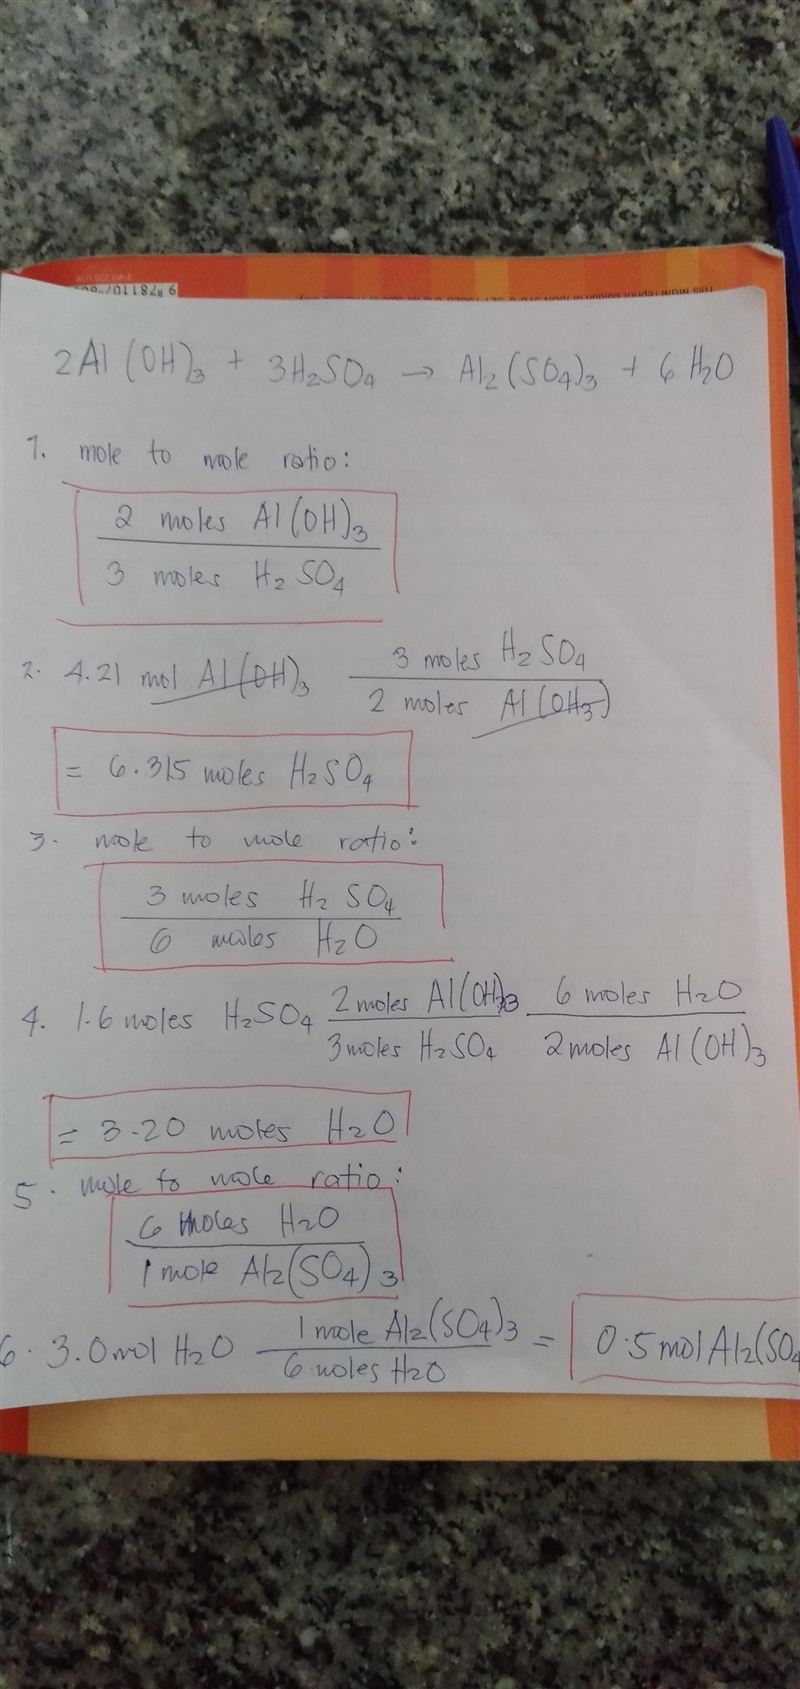 2Al(OH)3 + 3H2SO4 → Al2(SO4)3 + 6H2O
1. mole to mole ratio:
2 moles Al(OH)3
3 moles H2SO4
2. 4.21 mol Al(OH)3 3 moles H2SO4
2 moles Al(OH3)
= 6.315 moles H2SO4
3. mole to mole ratio:
3 moles H2SO4
6 moles H2O
4. 1.6 moles H2SO4 2 moles Al(OH)3 6 moles H2O
3 moles H2SO4 2 moles Al(OH)3
= 3.20 moles H2O
5. mole to mole ratio:
6 moles H2O
1 mole Al2(SO4)3
6. 3.0 mol H2O 1 mole Al2(SO4)3 = 0.5 mol Al2(SO4
6 moles H2O